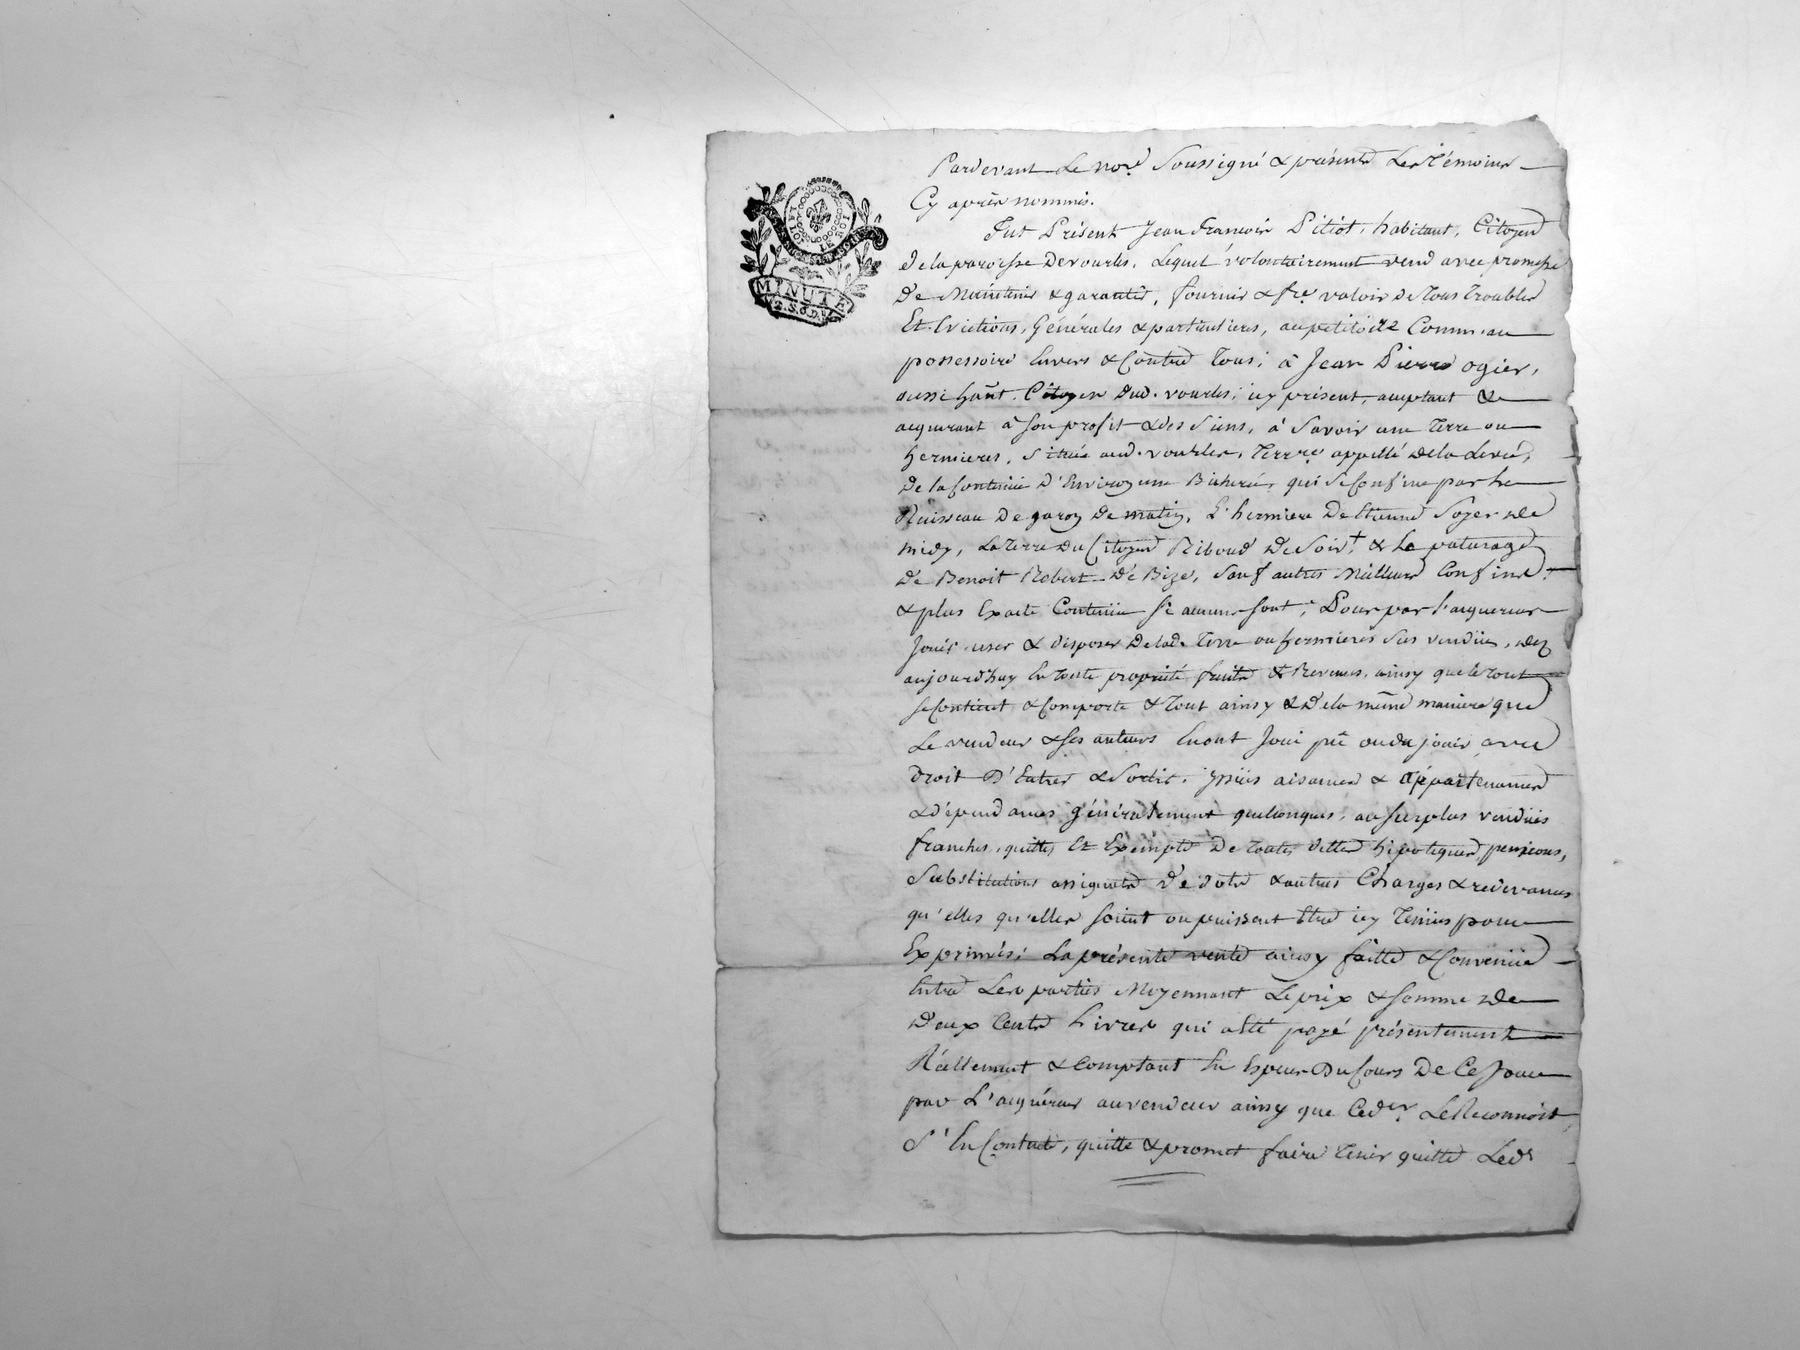 LA LOI ET LE ROI
MINUTE
2.S.6.D.
Pardevant Le no.re Soussigné & présents Les Témoins
Cy après nommés.
Fut Présent Jean François Pitiot, habitant, Citoyen
de la paroisse de vourles, Lequel volontairement vend avec promesse
De Maintenir & garantir, fournir & f.re valoir de Tous Troubles
Et Evictions, Générales & particulieres, au petitoire Comm'au
possessoire Envers & Contre Tous; à Jean Pierre ogier,
aussi hañt. Citoyen dud. vourles; icy présent, acceptant &
acquerant à Son profit & des Siens, à Savoir une Terre ou
hermieres, Située aud. vourles, Terr.re appellé de la Levée,
De la Contenüe D'Environ une Bicherée, qui se Confine par Le
Ruisseau De garon De matin, L'hermiere De Etienne Soyer de
midy, La Terre du Citoyen Riboud de Soir,† & Le paturage
De Benoit Robert De Bize, Sauf autres Meilleurs Confins,
& plus Exacte Contenüe Si aucuns sont; Pour par l'acquereur
Jouir user & disposer De lad. Terre ou hermieres Sus vendües, dez
aujourdhuy En Toute propriété fruits & Revenus, ainsy que le Tout
Se Contient & Comporte & Tout ainsy & de la même maniere que
Le vendeur & ses auteurs En ont Joui pû ou du jouir avec
droit D'Entrer & Sortir, yssües aisances & appartenances
& dépendances généralement quelconques; au surplus vendües
franches, quittes Et Exemptes De Toutes dettes hipoteques, pensions,
Substitutions assignats De dots & autres Charges & redevances
qu'elles qu'elles soient ou puissent Etre icy Tenües pour
Exprimés; La présente vente ainsy faitte & Convenüe
Entre Les parties Moyennant Le prix & somme de
Deux Cents Livres qui a Eté payé présentement
Réellement & Comptant En Especes Du Cours De Ce Jour
par L'acquéreur au vendeur ainsy que Ced.er Le Reconnoit
S'En Contente, quitte & promet faire Tenir quitte Led.